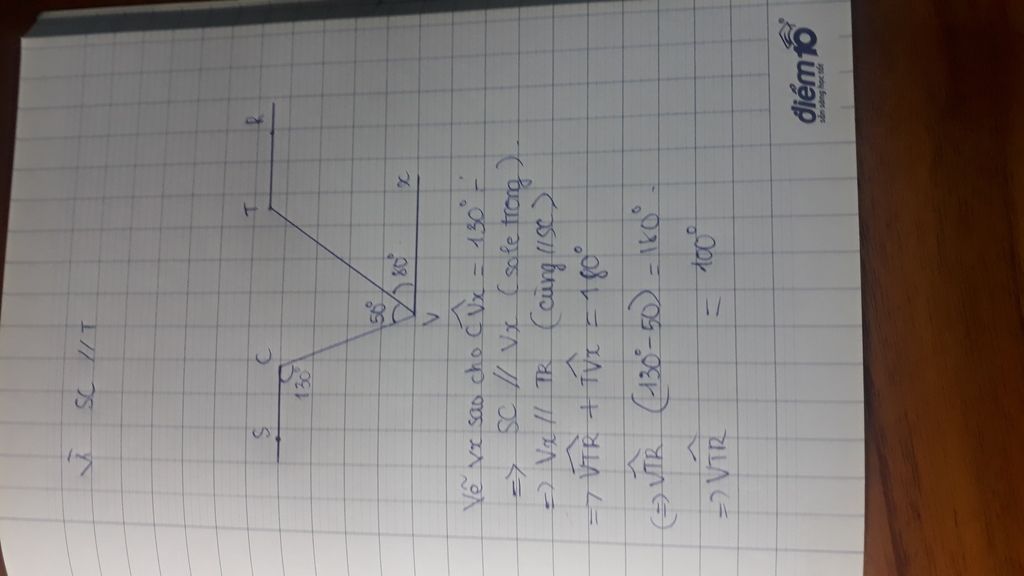 Vì SC // T
S C T R
130°
50°
80°
V x
Vẽ Vx sao cho CVx = 130° -
=> SC // Vx (sole trong).
=> Vx // TR (cùng // SC)
=> VTR + TVx = 180°
(=> VTR (130° - 50) = 180°.
=> VTR = 100°
điểm 10
sẵn sàng học tốt